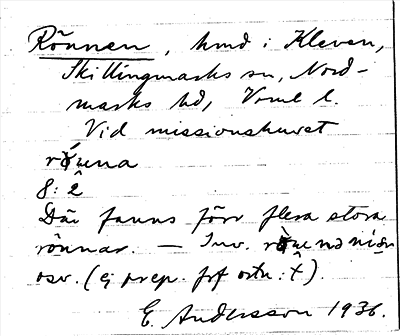 Rönnen, hmd i Kleven,
Skillingmarks sn, Nord-
marks hd, Vrml l.
Vid missionshuset
8:2
Där fanns förr flera stora
rönnar. — Inv.
osv. (ej prep. frf ortn :t).
E. Andersson 1936.